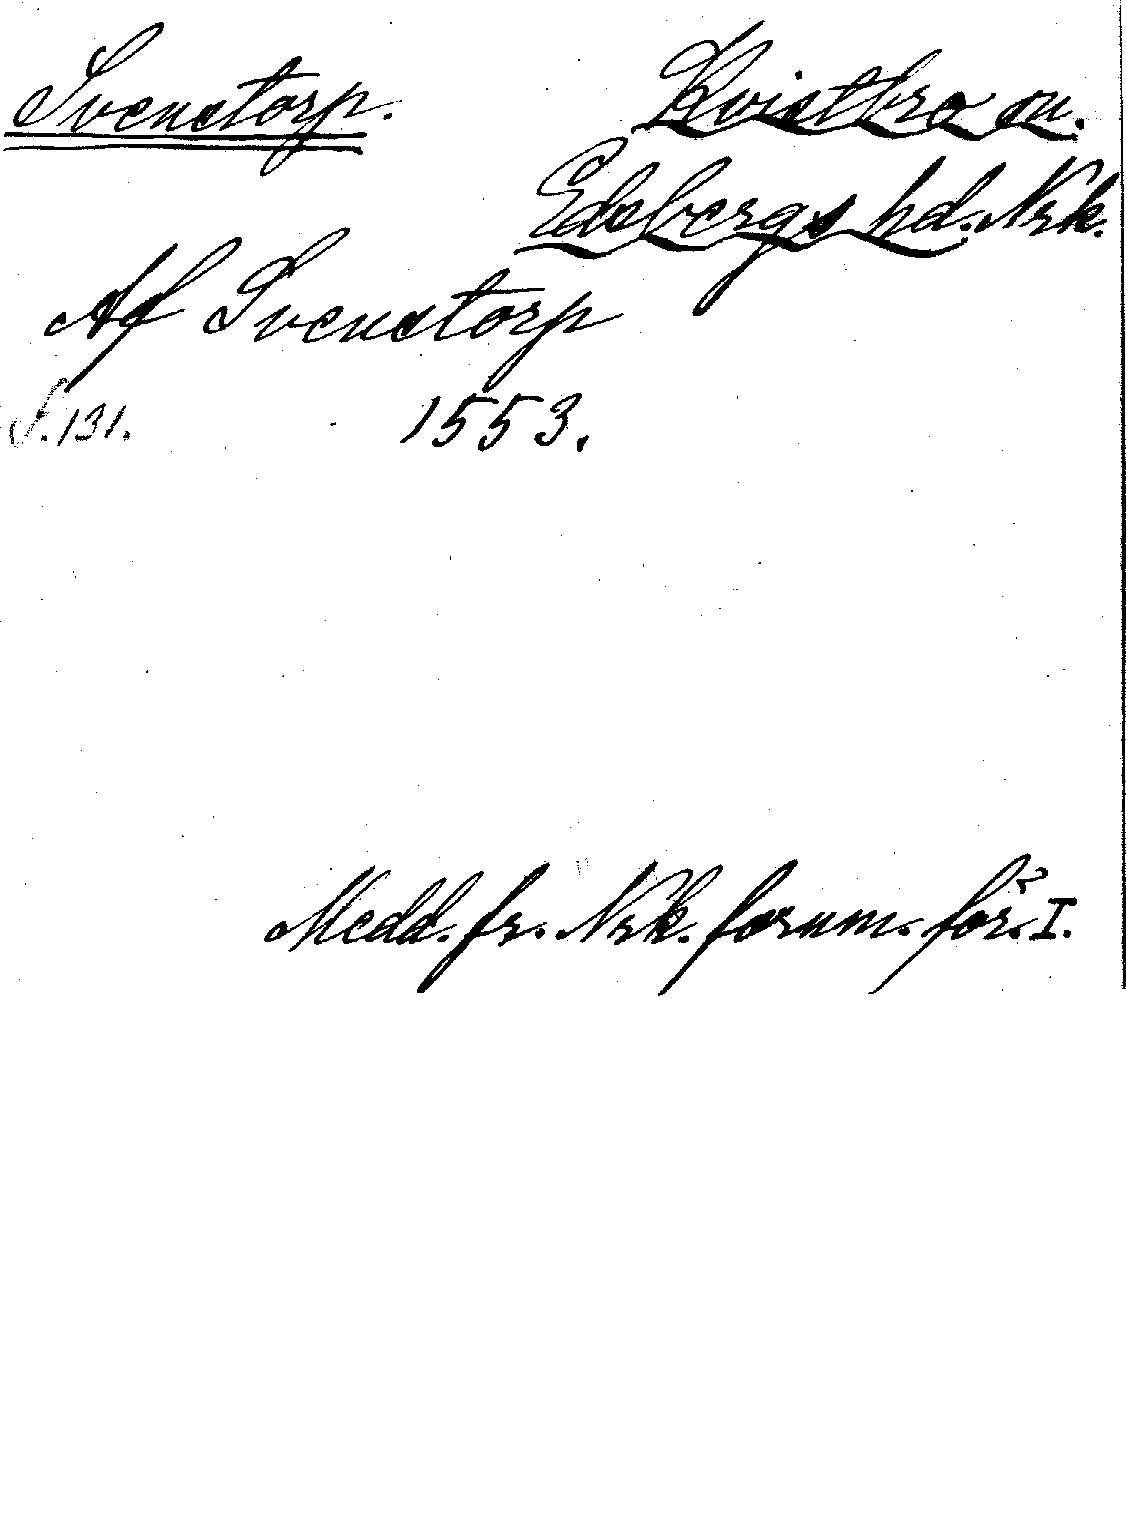 Svenstorp. Kvistbro sn.
Edsbergs hd. Nrk.
Af Svenstorp
S. 131. 1553.
Medd. fr. Nrk. fornm. för. I.